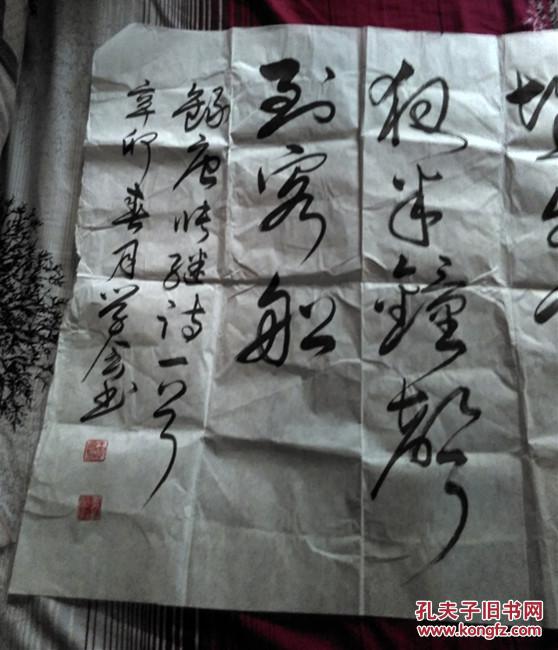 夜半鐘聲
到客船
錄唐张继诗一首
辛卯春月学书
孔夫子旧书网
www.kongfz.com